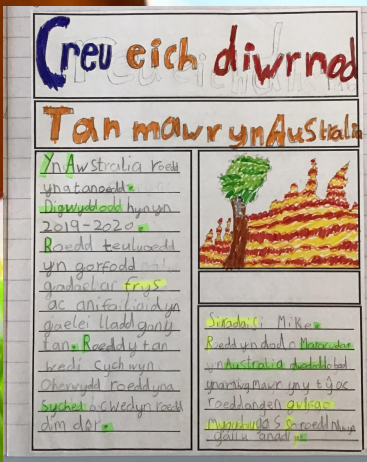 Creu eich diwrnod
Tan mawr yn Australia
Yn Awstralia roedd
yna tanoedd.
Digwyddodd hyn yn
2019-2020.
Roedd teuluoedd
yn gorfodd
gadael ar frys
ac anifeiliaid yn
gaelei lladd gan y
tan. Roedd y tan
wedi cychwyn
Oherwydd roedd yna
Syched ac wedyn roedd
dim dŵr.
Siradais i Mike.
Roedd yn dod n
yn Australia dwedodd o bod
yna mwg mawr yn y tŷ ac
roedd angen
roedd nhw'n
gallu anadlu.